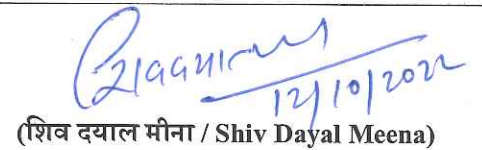 शिवदयाल
12/10/2022
(शिव दयाल मीना / Shiv Dayal Meena)